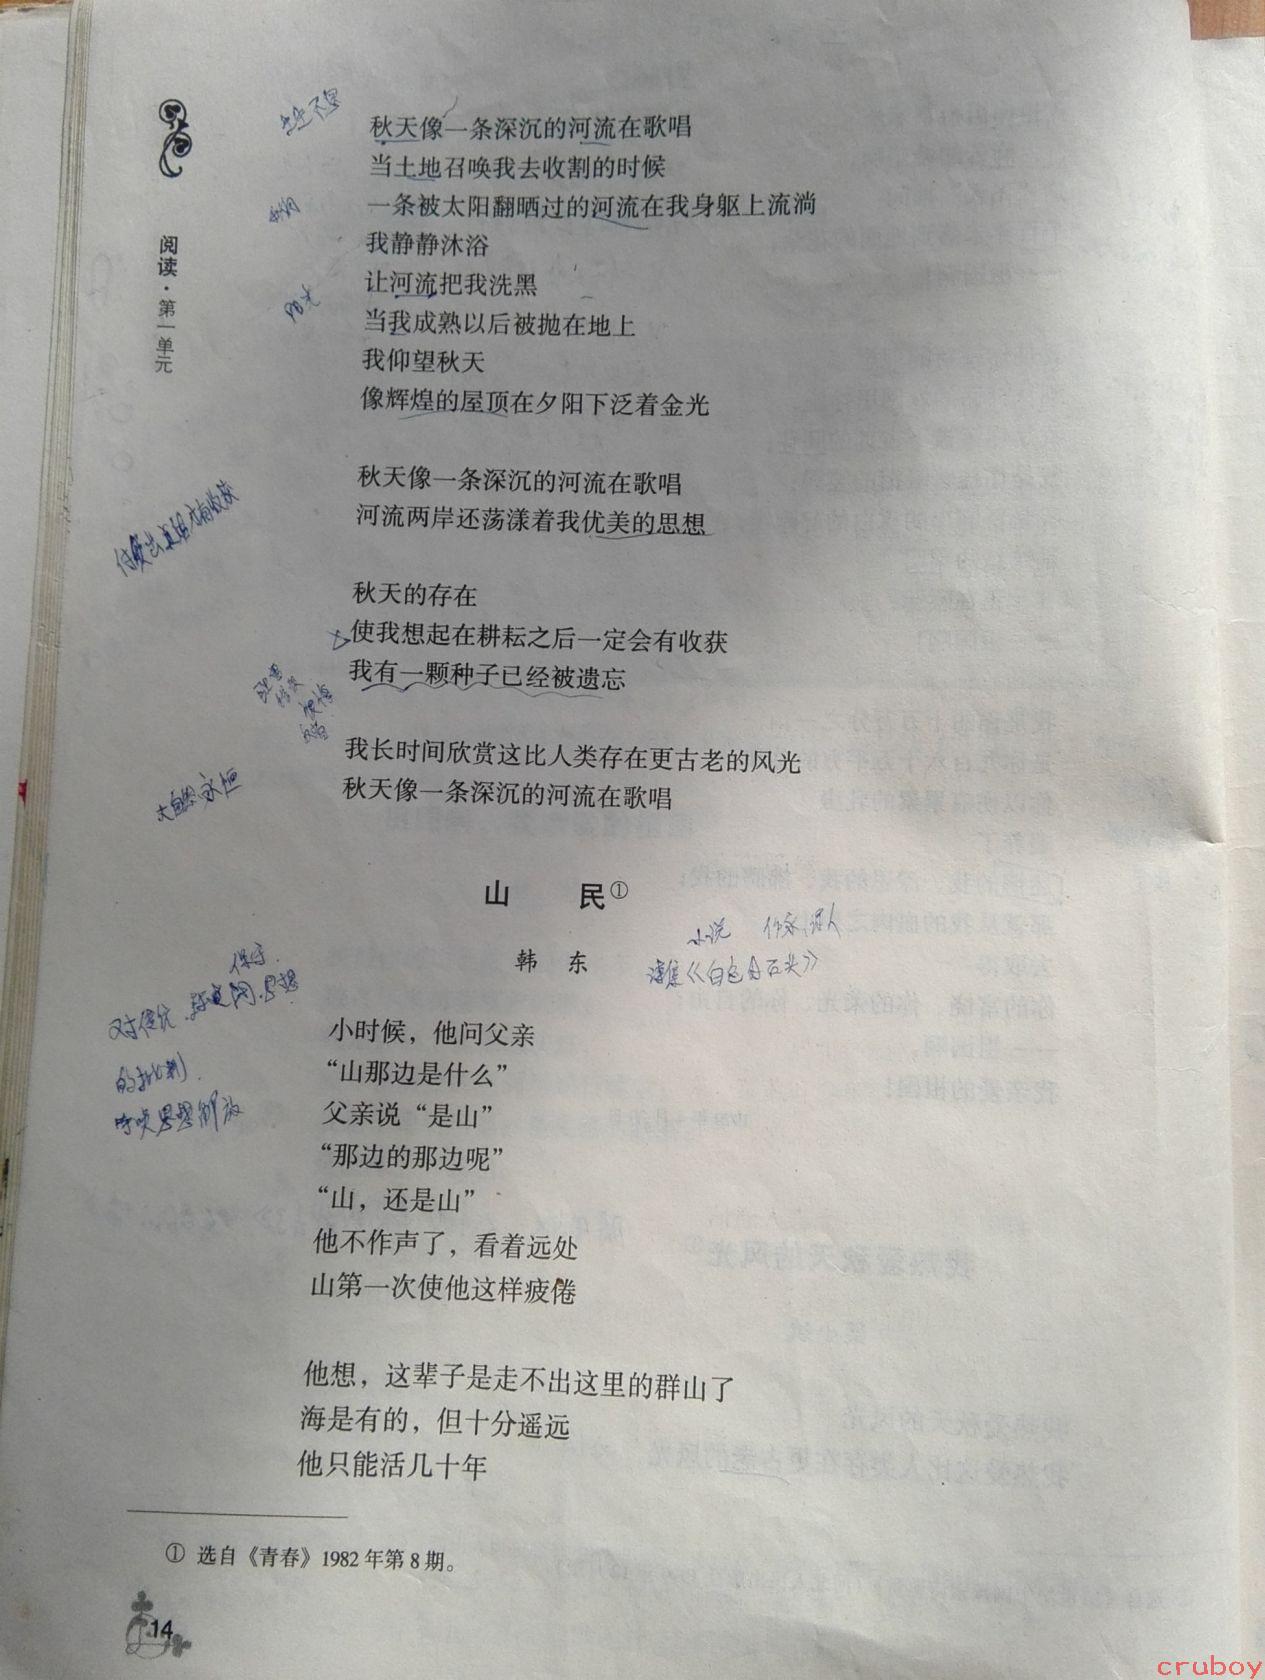 阅读·第一单元
秋天像一条深沉的河流在歌唱
当土地召唤我去收割的时候
一条被太阳翻晒过的河流在我身躯上流淌
我静静沐浴
让河流把我洗黑
当我成熟以后被抛在地上
我仰望秋天
像辉煌的屋顶在夕阳下泛着金光
秋天像一条深沉的河流在歌唱
河流两岸还荡漾着我优美的思想
秋天的存在
使我想起在耕耘之后一定会有收获
我有一颗种子已经被遗忘
我长时间欣赏这比人类存在更古老的风光
大自然永恒
秋天像一条深沉的河流在歌唱
山 民①
小说
韩 东
诗集《白色的石头》
保守
对传统
思想
的批判
呼唤思想解放
小时候，他问父亲
“山那边是什么”
父亲说“是山”
“那边的那边呢”
“山，还是山”
他不作声了，看着远处
山第一次使他这样疲倦
他想，这辈子是走不出这里的群山了
海是有的，但十分遥远
他只能活几十年
① 选自《青春》1982年第8期。
14
cruboy